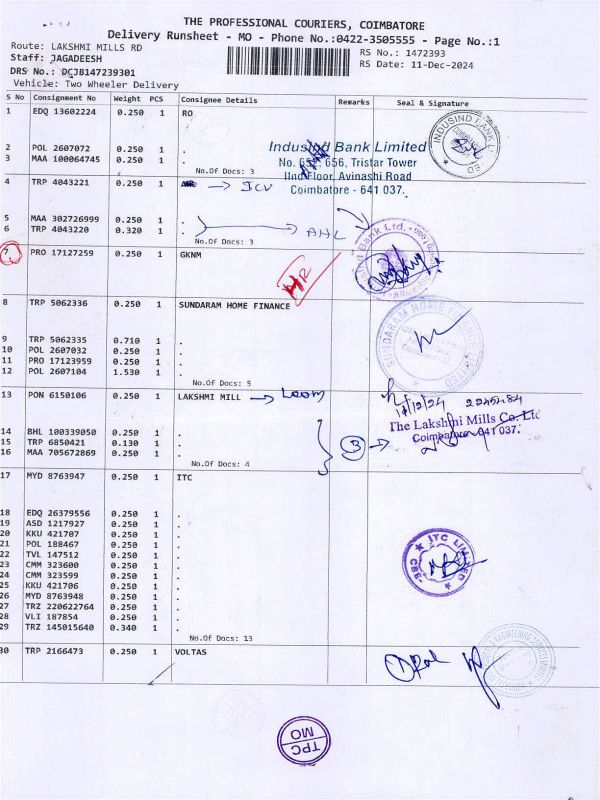 THE PROFESSIONAL COURIERS, COIMBATORE
Delivery Runsheet - MO - Phone No.:0422-3505555 - Page No.:1
Route: LAKSHMI MILLS RD
RS No.: 1472393
Staff: JAGADEESH
RS Date: 11-Dec-2024
DRS No.: DCJB147239301
Vehicle: Two Wheeler Delivery
S No Consignment No Weight PCS Consignee Details Remarks Seal & Signature
1 EDQ 13602224 0.250 1 RO
2 POL 2607072 0.250 1 .
3 MAA 100064745 0.250 1 .
No.Of Docs: 3
IndusInd Bank Limited
656, Tristar Tower
IInd Floor, Avinashi Road
Coimbatore - 641 037.
INDUSIND BANK
4 TRP 4043221 0.250 1 → ICV
5 MAA 302726999 0.250 1 .
6 TRP 4043220 0.320 1 . → AHL
No.Of Docs: 3
7 PRO 17127259 0.250 1 GKNM
Bank Ltd.
8 TRP 5062336 0.250 1 SUNDARAM HOME FINANCE
9 TRP 5062335 0.710 1 .
10 POL 2607032 0.250 1 .
11 PRO 17123959 0.250 1 .
12 POL 2607104 1.530 1 .
No.Of Docs: 5
SUNDARAM HOME FINANCE LIMITED
13 PON 6150106 0.250 1 LAKSHMI MILL → Loom
14 BHL 100339050 0.250 1 .
15 TRP 6850421 0.130 1 .
16 MAA 705672869 0.250 1 .
No.Of Docs: 4
3 →
The Lakshmi Mills Co. Ltd
Coimbatore-641 037.
17 MYD 8763947 0.250 1 ITC
18 EDQ 26379556 0.250 1 .
19 ASD 1217927 0.250 1 .
20 KKU 421707 0.250 1 .
21 POL 188467 0.250 1 .
22 TVL 147512 0.250 1 .
23 CMM 323600 0.250 1 .
24 CMM 323599 0.250 1 .
25 KKU 421706 0.250 1 .
26 MYD 8763948 0.250 1 .
27 TRZ 220622764 0.250 1 .
28 VLI 187854 0.250 1 .
29 TRZ 145015640 0.340 1 .
No.Of Docs: 13
ITC LIMITED
CBE
30 TRP 2166473 0.250 1 VOLTAS
TPC
MO